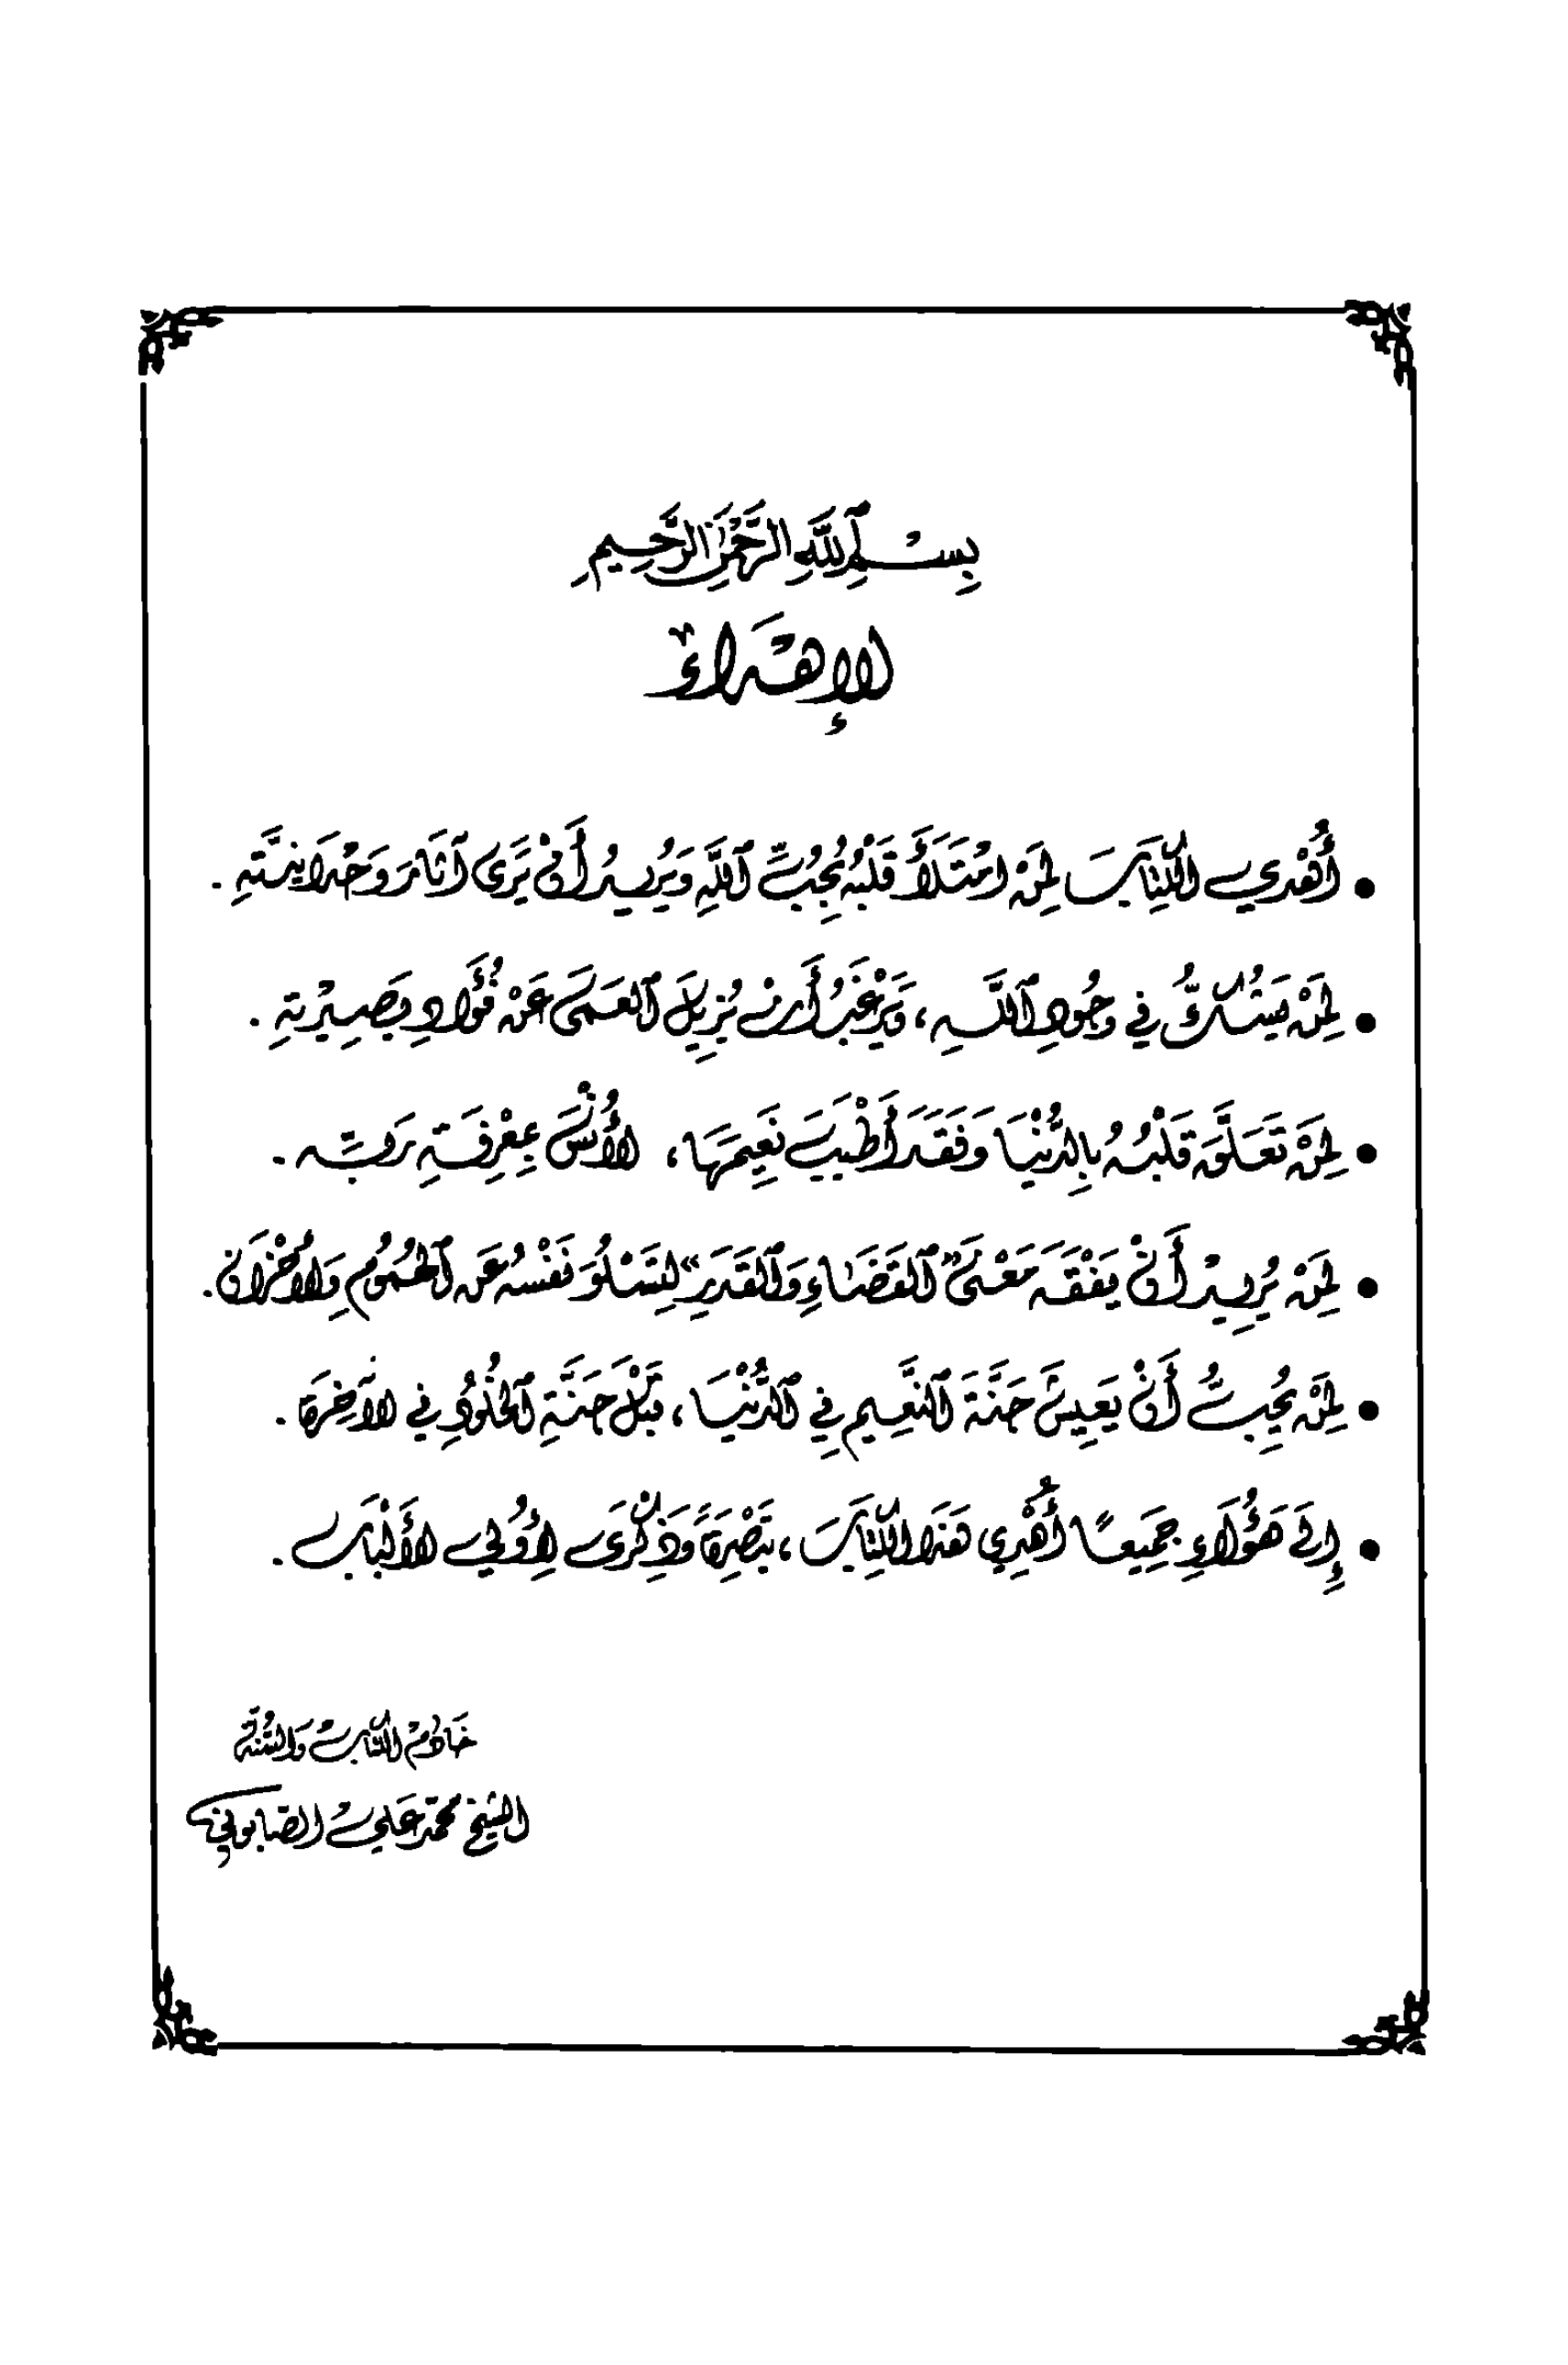 بِسْمِ اللَّهِ الرَّحْمَنِ الرَّحِيمِ
الإِهْدَاءُ
• أُهْدِي الكِتَابَ لِمَنْ امْتَلَأَ قَلْبُهُ بِحُبِّ اللَّهِ وَيُرِيدُ أَنْ يَرَى آثَارَ وَحْدَانِيَّتِهِ .
• لِمَنْ يَشُكُّ فِي وُجُودِ اللَّهِ ، وَيَرْغَبُ أَنْ يُزِيلَ العَمَى عَنْ فُؤَادِ بَصِيرْتِهِ .
• لِمَنْ تَعَلَّقَ قَلْبُهُ بِالدُّنْيَا وَفَقَدَ أَطْيَبَ نَعِيمَهَا ، الأُنْسَ بِمِعْرِفَةِ رَبِّهِ .
• لِمَنْ يُرِيدُ أَنْ يَفْقَهَ مَعْنَى " القَضَاءِ وَالقَدَرِ " لِتَسْلُوَ نَفْسُهُ عَنِ الهُمُومِ وَالأَحْزَانِ .
• لِمَنْ يُحِبُّ أَنْ يَعِيشَ جَنَّةَ النَّعِيمِ فِي الدُّنْيَا ، قَبْلَ جَنَّةِ الخُلُودِ فِي الآخِرَةِ .
• إِلَى هَؤُلَاءِ جَمِيعًا أُهْدِي هَذَا الكِتَابَ ، تَبْصِرَةً وَذِكْرَى لِأُولِي الأَلْبَابِ .
خَادِمُ الكِتَابِ وَالسُّنَّةِ
الشيخ محمد علي الصابوني